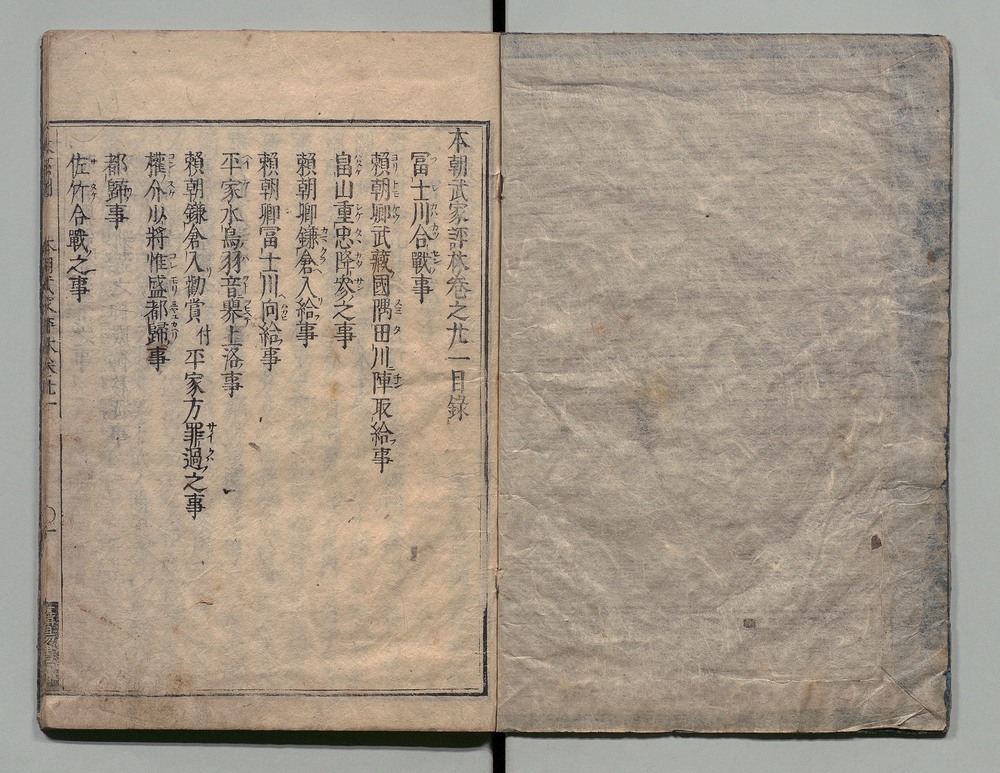 本朝武家評林巻之廿一目録
冨士川合戰事
頼朝卿武藏國隅田川陣取給事
畠山重忠降參之事
頼朝卿鎌倉入給事
頼朝卿冨士川向給事
平家水鳥羽音㕝上洛事
頼朝鎌倉入勧賞付平家方罪過之事
權介少將惟盛都歸事
都歸事
佐竹合戰之事